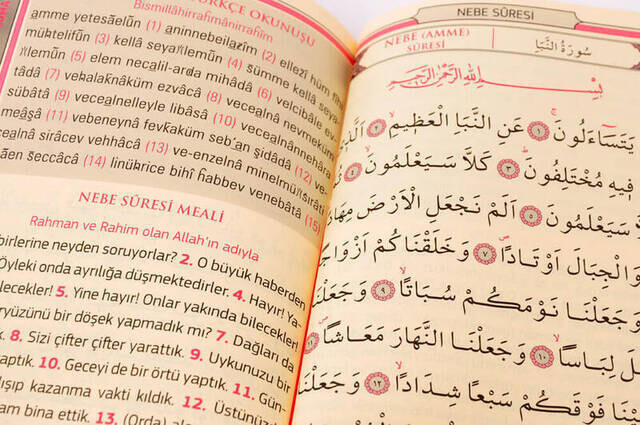 TÜRKÇE OKUNUŞU
Bismillâhirrahmânirrahîm
amme yetesâelûn (1) aninnebeilazîm (2) ellezî hüm fîhi
muhtelifûn (3) kellâ seya'lemûn (4) sümme kellâ seya-
'lemûn (5) elem necalil-arda mihâdâ (6) velcibâle ev-
tâdâ (7) vehalaknâküm ezvâcâ (8) vecealnâ nevmeküm
sübâtâ (9) vecealnelleyle libâsâ (10) vecealnânnehâra
meâşâ (11) vebeneynâ fevkaküm seb'an şidâdâ (12) ve-
cealnâ sirâcev vehhâcâ (13) ve-enzelnâ minelmu'sırâti
mâen seccâcâ (14) linuhrice bihî habbev venebâtâ (15)
NEBE SÛRESİ MEALİ
Rahman ve Rahim olan Allah'ın adıyla
birlerine neyden soruyorlar? 2. O büyük haberden
Öyleki onda ayrılığa düşmektedirler. 4. Hayır! Ya-
lecekler! 5. Yine hayır! Onlar yakında bilecekler!
ryüzünü bir döşek yapmadık mı? 7. Dağları da
8. Sizi çifter çifter yarattık. 9. Uykunuzu bir
yaptık. 10. Geceyi de bir örtü yaptık. 11. Gün-
lışıp kazanma vakti kıldık. 12. Üstünüz
am bina ettik. 13. (Orda) alev
NEBE SÛRESİ
NEBE (AMME) SÛRESİ
سُورَةُ النَّبَأِ
بِسْمِ اللّٰهِ الرَّحْمٰنِ الرَّحِيمِ
يَتَسَاءَلُونَ ﴿١﴾ عَنِ النَّبَاِ الْعَظِيمِ ﴿٢﴾ اَلَّذِي
فِيهِ مُخْتَلِفُونَ ﴿٣﴾ كَلَّا سَيَعْلَمُونَ ﴿٤﴾
سَيَعْلَمُونَ ﴿٥﴾ اَلَمْ نَجْعَلِ الْاَرْضَ مِهَادًا
وَالْجِبَالَ اَوْتَادًا ﴿٧﴾ وَخَلَقْنَاكُمْ اَزْوَاجًا
وَجَعَلْنَا نَوْمَكُمْ سُبَاتًا ﴿٩﴾ وَجَعَلْنَا
لَ لِبَاسًا ﴿١٠﴾ وَجَعَلْنَا النَّهَارَ مَعَاشًا ﴿١١﴾
نَا فَوْقَكُمْ سَبْعًا شِدَادًا ﴿١٢﴾ وَجَعَلْنَا